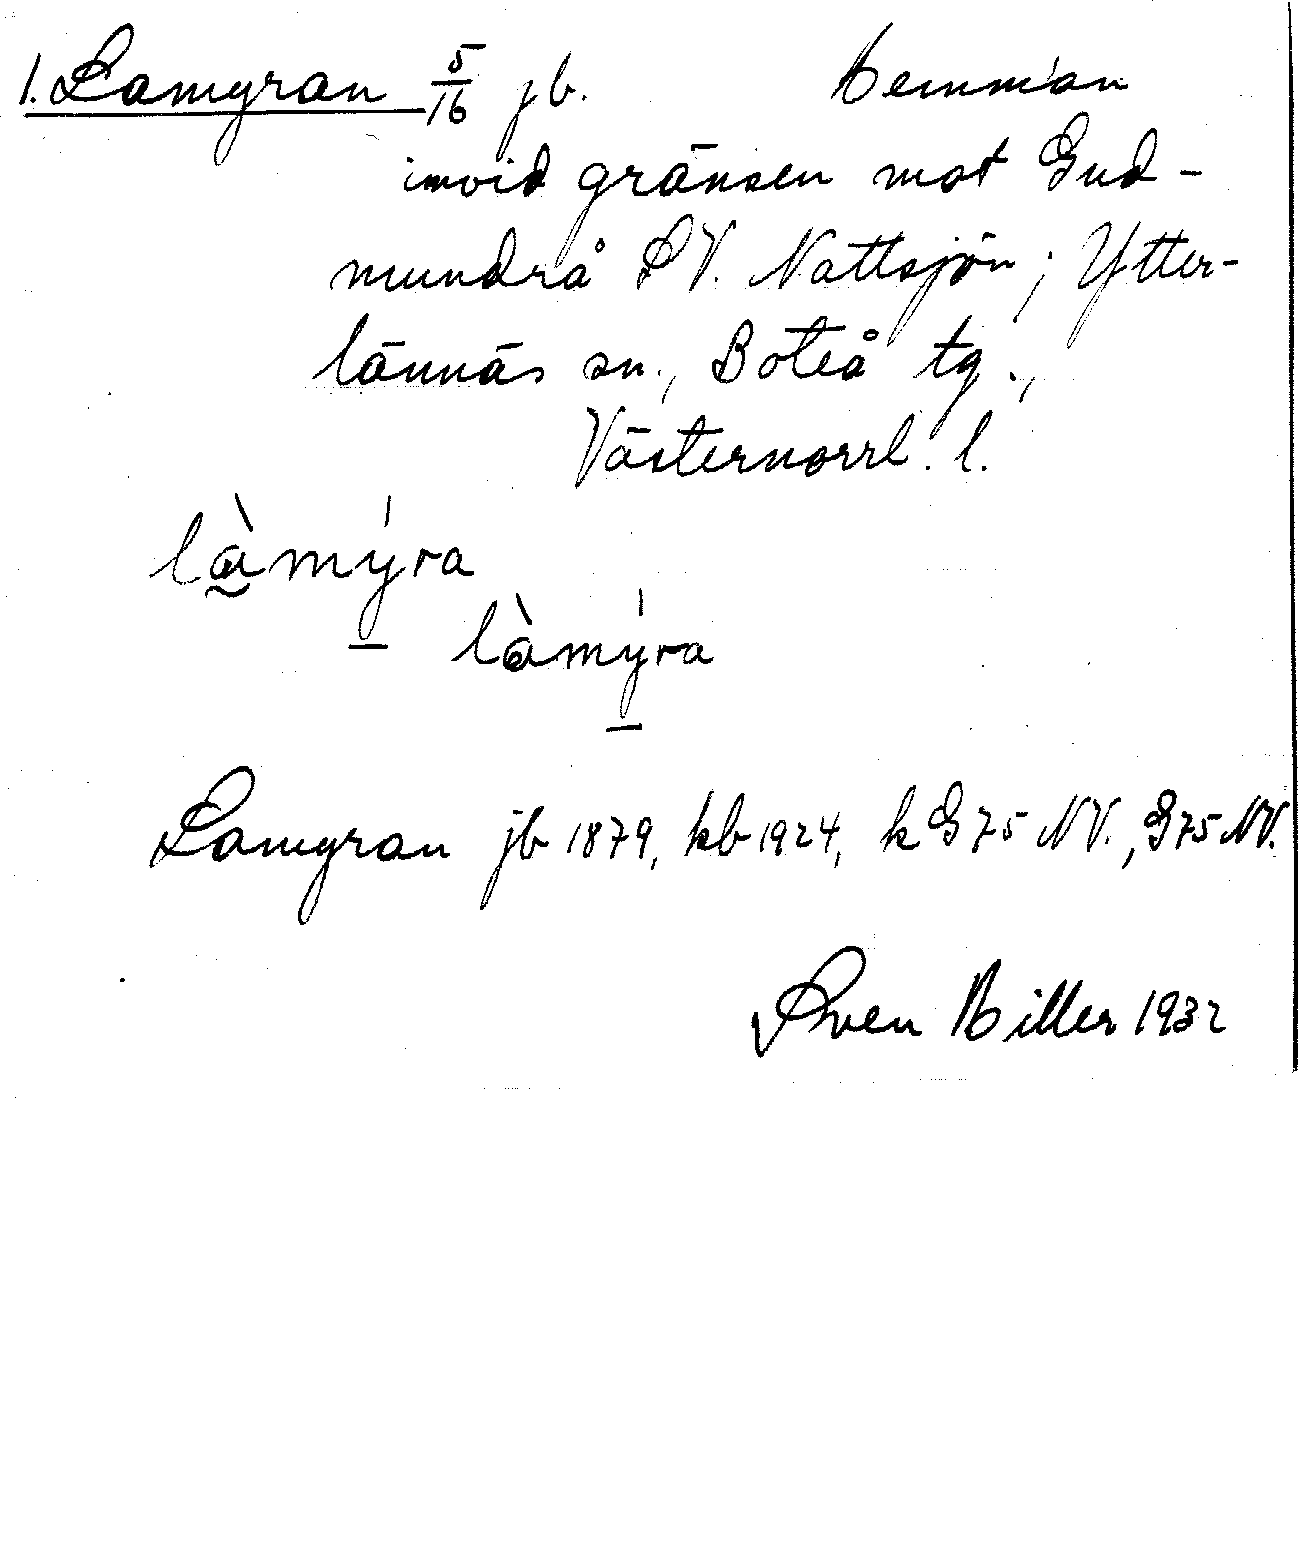 1. Lamyran 5/16 jb. Hemman
invid gränsen mot Gud-
mundrå SV. Nattsjön; Ytter-
lännäs sn., Boteå tg.,
Västernorrl. l.
làmýra
làmýra
Lamyran jb 1879, kb 1924, k G 75 NV., G 75 NV.
Sven Hiller 1932